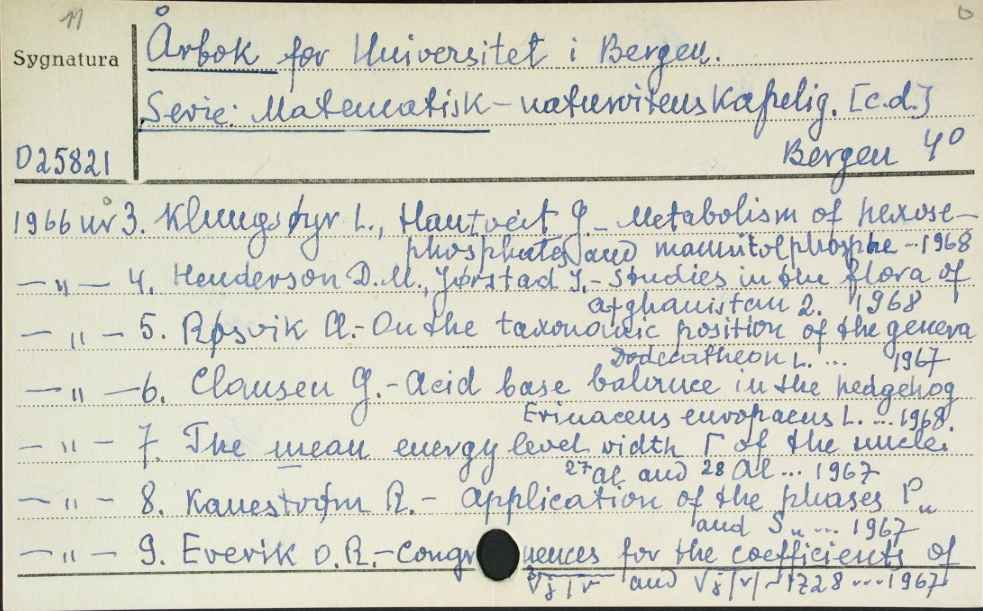 11
Sygnatura
Årbok for Universitet i Bergen.
Serie: Matematisk-naturvitenskapelig. [c.d.]
D25821
Bergen 4°
1966 nr 3. Klungsøyr L., Hautveit G. - Metabolism of hexose-
phosphates and mannitolphosphe - 1968
— „ — 4. Henderson D.M., Jørstad I. - Studies in the flora of
afghanistan 2. 1968
— „ — 5. Røsvik A. - On the taxonomic position of the genera
Dodecatheon L. ... 1967
— „ — 6. Clausen G. - Acid base balance in the hedgehog
Erinaceus europaeus L. ... 1968.
— „ — 7. The mean energy level width Γ of the nuclei
27 Al and 28 Al ... 1967
— „ — 8. Kanestrøm R. - Application of the phases Pn
and Sn ... 1967
— „ — 9. Everik O.R. - Congruences for the coefficients of
and 1728 ... 1967